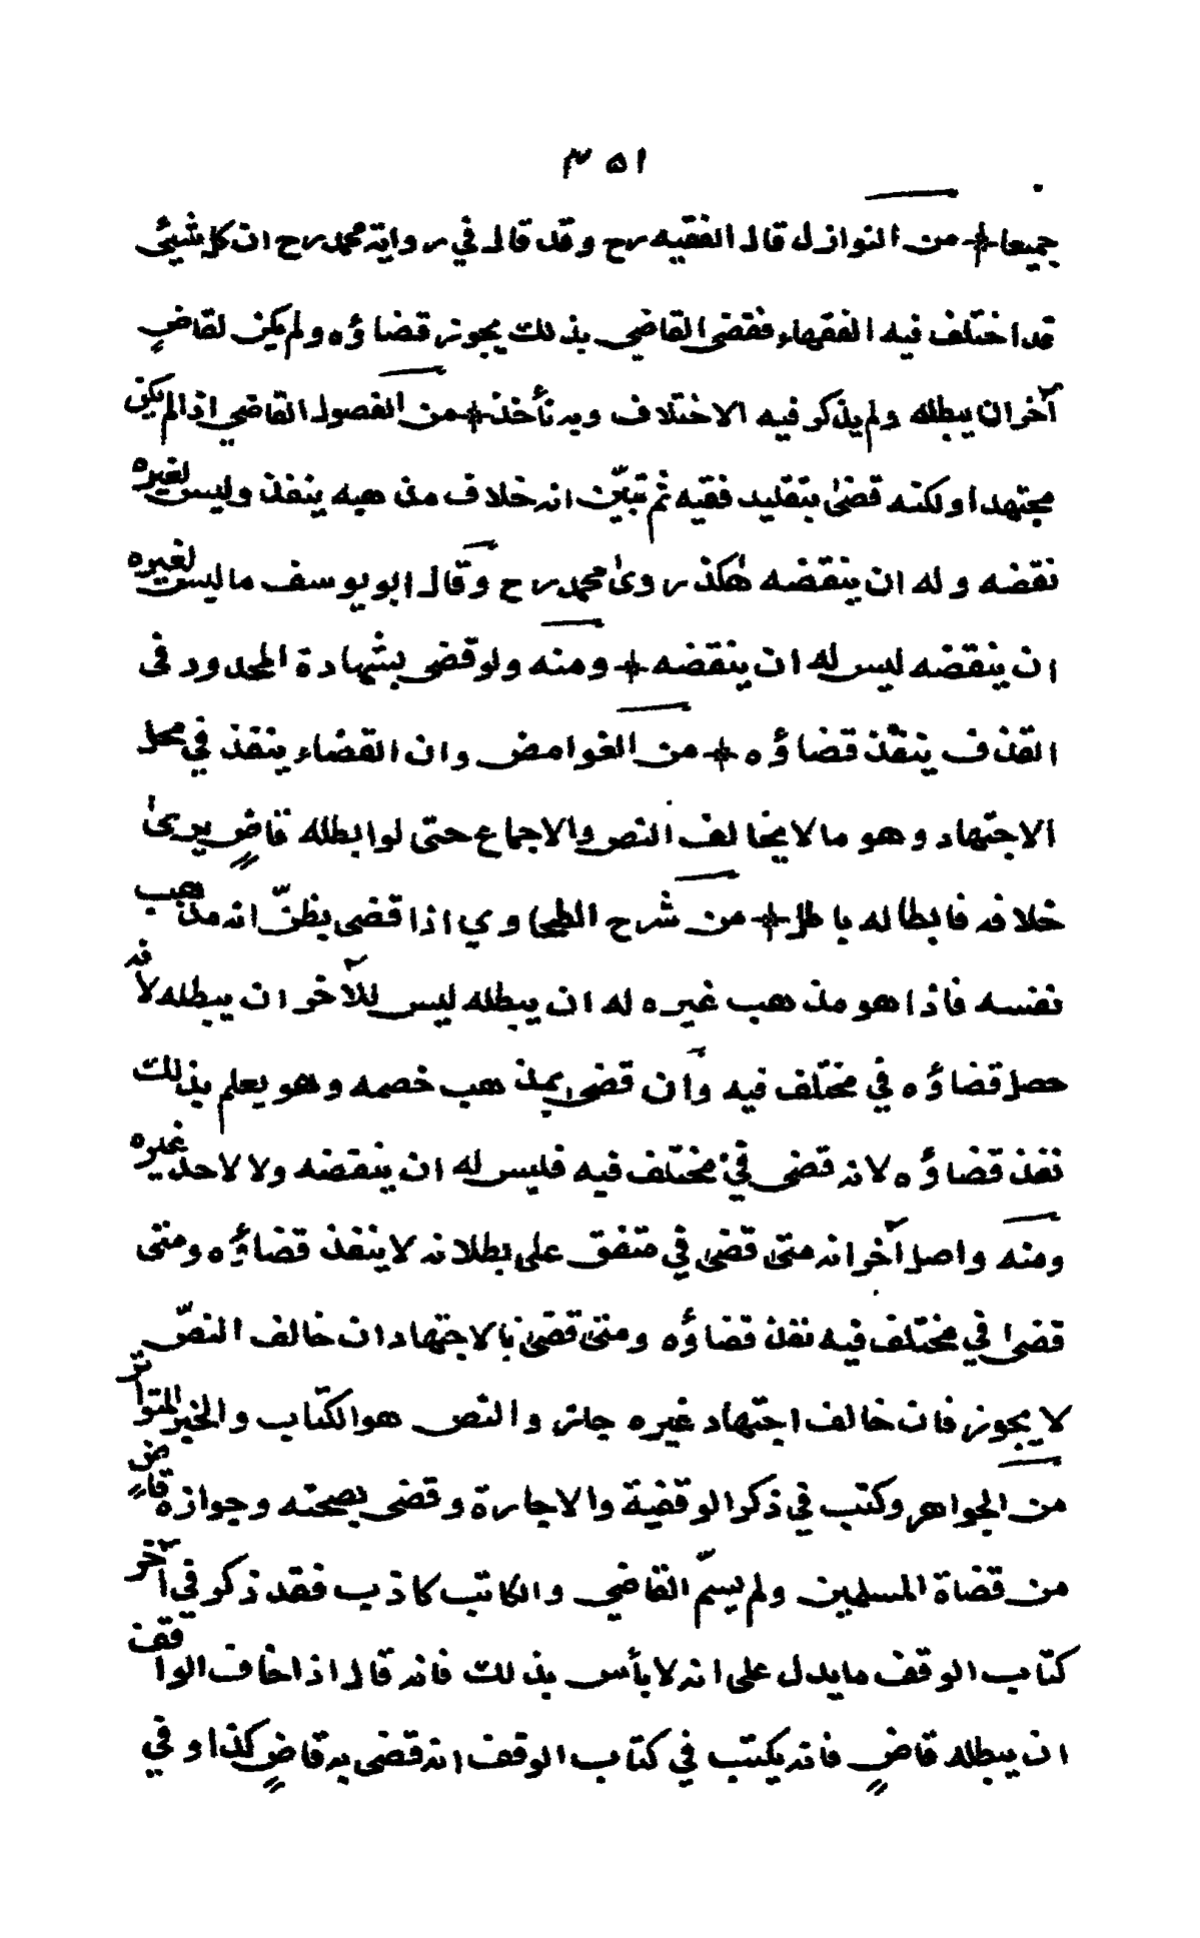 ٣٥١
جميعا + من النوازل قال الفقيه رح وقد قال في رواية محمد رح ان كل شيئ
قد اختلف فيه الفقهاء فقضى القاضي بذلك يجوز قضاؤه ولم يكن لقاضٍ
آخر ان يبطله ولم يذكر فيه الاختلاف وبه نأخذ + من الفصول القاضي اذا لم يكن
مجتهدا ولكنه قضىٰ بتقليد فقيه ثم تبيّن انه خلاف مذهبه ينفذ وليس لغيره
نقضه وله ان ينقضه هٰكذا روىٰ محمد رح وقال ابو يوسف ما ليس لغيره
ان ينقضه ليس له ان ينقضه + ومنه ولو قضى بشهادة المحدود فى
القذف ينفّذ قضاؤه + من الغوامض وان القضاء ينفذ في محل
الاجتهاد وهو ما لا يخالف النص والاجماع حتى لو ابطله قاضٍ يرىٰ
خلافه فابطاله باطل + من شرح الطحاوي اذا قضى يظنّ انه مذهب
نفسه فاذا هو مذهب غيره له ان يبطله ليس للآخر ان يبطله لأنه قد
حصل قضاؤه في مختلف فيه وان قضى بمذهب خصمه وهو يعلم بذلك
نفذ قضاؤه لانه قضى في مختلف فيه فليس له ان ينقضه ولا لاحد غيره
ومنه واصل آخر انه متىٰ قضىٰ في متفق على بطلانه لا ينفذ قضاؤه ومتى
قضىٰ في مختلف فيه نفذ قضاؤه ومتىٰ قضىٰ بالاجتهاد ان خالف النصّ
لا يجوز فان خالف اجتهاد غيره جاز والنص هو الكتاب والخبر المتواتر
من الجواهر وكتب في ذكر الوقفية والاجارة وقضى بصحته وجوازه قاضٍ
من قضاة المسلمين ولم يسمّ القاضي والكاتب كاذب فقد ذكر في آخر
كتاب الوقف ما يدل على انه لا بأس بذلك فانه قال اذا خاف الواقف
ان يبطله قاضٍ فانه يكتب في كتاب الوقف انه قضى به قاضٍ كذا وفي